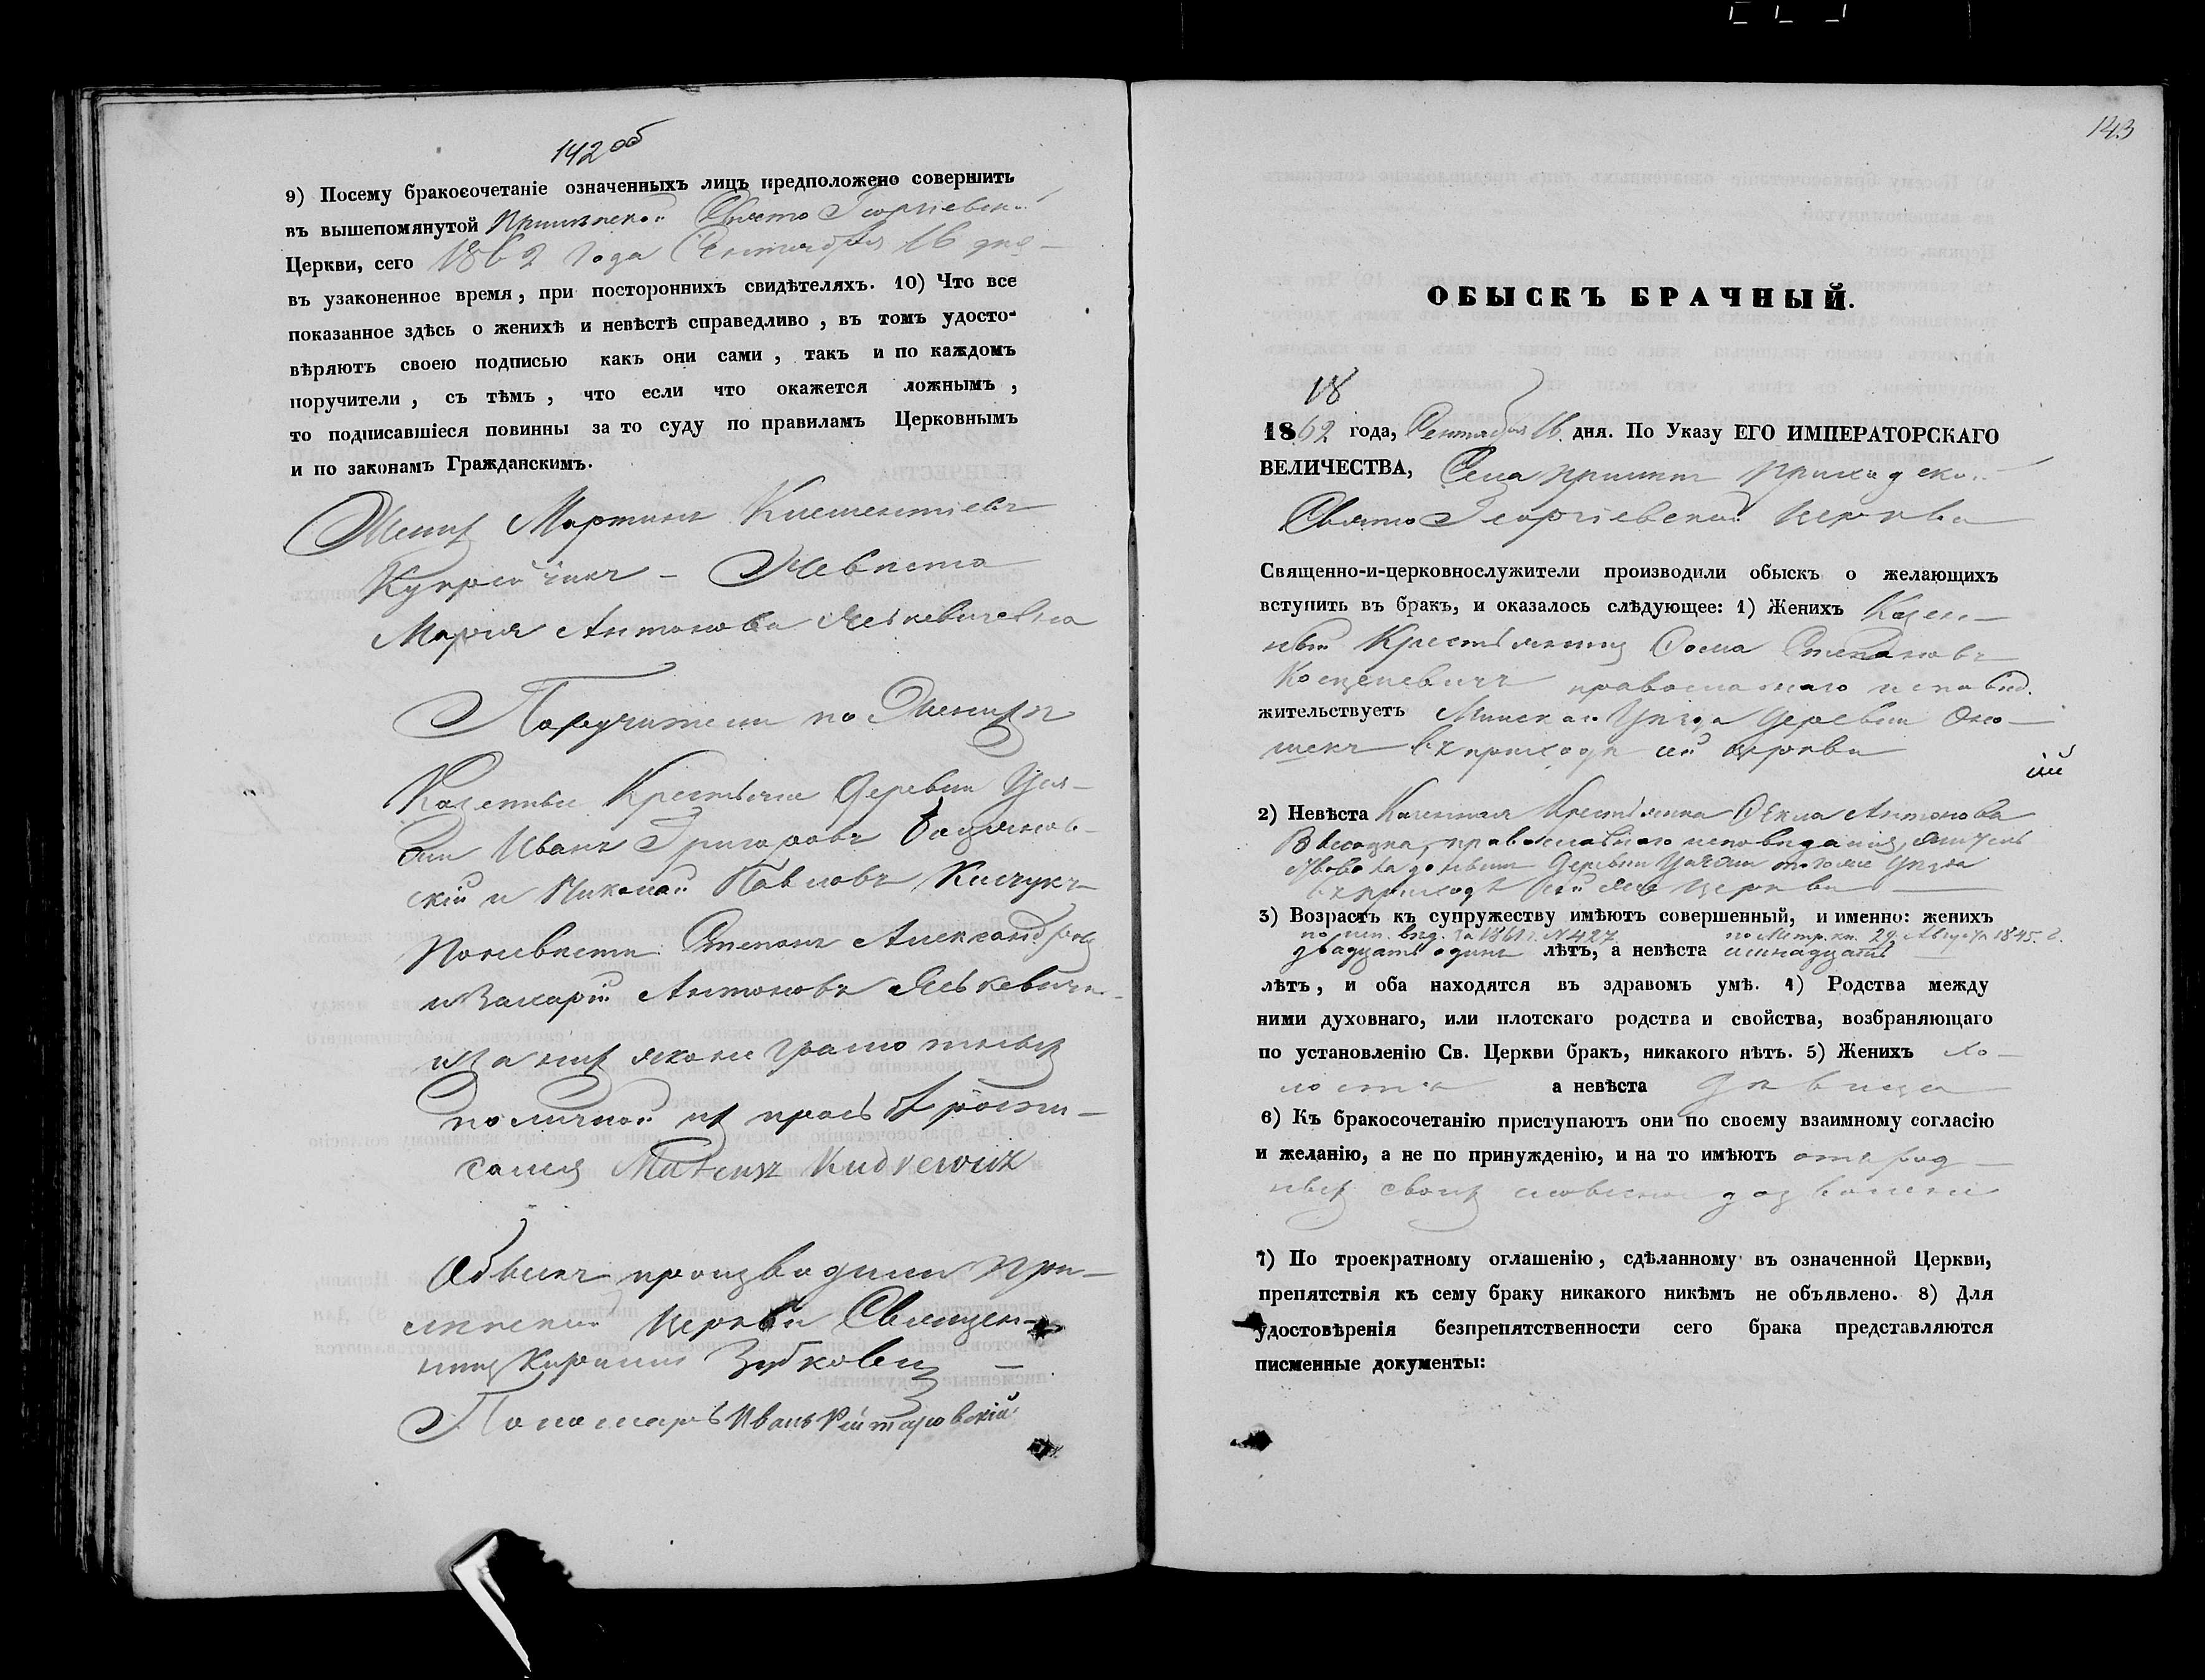 142 об
9) Посему бракосочетаніе означенныхъ лицъ предположено совершить
въ вышепомянутой Прилѣпской Свято Георгіевской
Церкви, сего 1862 года Сентября 16 дня
въ узаконенное время, при постороннихъ свидѣтеляхъ. 10) Что все
показанное здѣсь о женихѣ и невѣстѣ справедливо, въ томъ удосто-
вѣряютъ своею подписью какъ они сами, такъ и по каждомъ
поручители, съ тѣмъ, что если что окажется ложнымъ,
то подписавшіеся повинны за то суду по правиламъ Церковнымъ
и по законамъ Гражданскимъ.
Женихъ Мартинъ Климентіевъ
Купрейчикъ - Невѣста
Марія Антонова Яськевичевна
Поручители по Женихѣ
Казенные Крестьяне Деревни
Иванъ Григоровъ
скій и Николай Павловъ Кислукъ
По невѣстѣ Степанъ Александровъ
и Захарій Антоновъ Яськевичи
а за ихъ яко не грамотныхъ
по личной ихъ просьбѣ роспи-
сался Mateusz Kudrewicz
Обыскъ производили При-
лѣпской Церкви Священ-
никъ Кирилъ Зубковичъ
Пономарь Иванъ Рейтаровскій
143
ОБЫСКЪ БРАЧНЫЙ.
18
1862 года, Сентября 16 дня. По Указу ЕГО ИМПЕРАТОРСКАГО
ВЕЛИЧЕСТВА, Села Прилѣпъ Приходской
Свято Георгіевской Церкви
Священно-и-церковнослужители производили обыскъ о желающихъ
вступить въ бракъ, и оказалось слѣдующее: 1) Женихъ Казен-
ный Крестьянинъ Фома Степановъ
православнаго исповѣд.
жительствуетъ Минскаго Уѣзда Деревни
въ приходѣ сей церкви
2) Невѣста Казенная Крестьянка Ѳекла Антонова
православнаго исповѣданія, жительс
Деревни того же Уѣзда
въ приходѣ сей же церкви
3) Возрастъ къ супружеству имѣютъ совершенный, и именно: женихъ
по исп. вѣд. за 1861 г. N 427. по Метр. кн. 29 Августа 1845. г.
двадцать одинъ лѣтъ, а невѣста
лѣтъ, и оба находятся въ здравомъ умѣ. 4) Родства между
ними духовнаго, или плотскаго родства и свойства, возбраняющаго
по установленію Св. Церкви бракъ, никакого нѣтъ. 5) Женихъ хо-
лостъ а невѣста дѣвица
6) Къ бракосочетанію приступаютъ они по своему взаимному согласію
и желанію, а не по принужденію, и на то имѣютъ отъ род-
ныхъ своихъ словесное дозволеніе
7) По троекратному оглашенію, сдѣланному въ означенной Церкви,
препятствія къ сему браку никакого никѣмъ не объявлено. 8) Для
удостовѣренія безпрепятственности сего брака представляются
писменные документы: